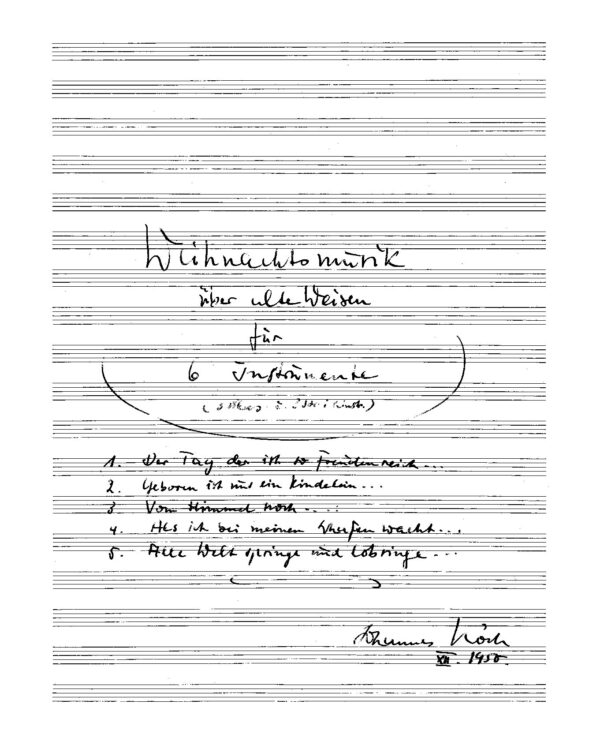 Weihnachtsmusik
über alte Weisen
für
6 Instrumente
1. Der Tag der ist so freudenreich...
2. Geboren ist uns ein Kindelein...
3 Vom Himmel hoch....
4. Als ich bei meinen Schafen wacht...
5. Alle Welt springe und lobsinge...
Johannes
XII. 1950